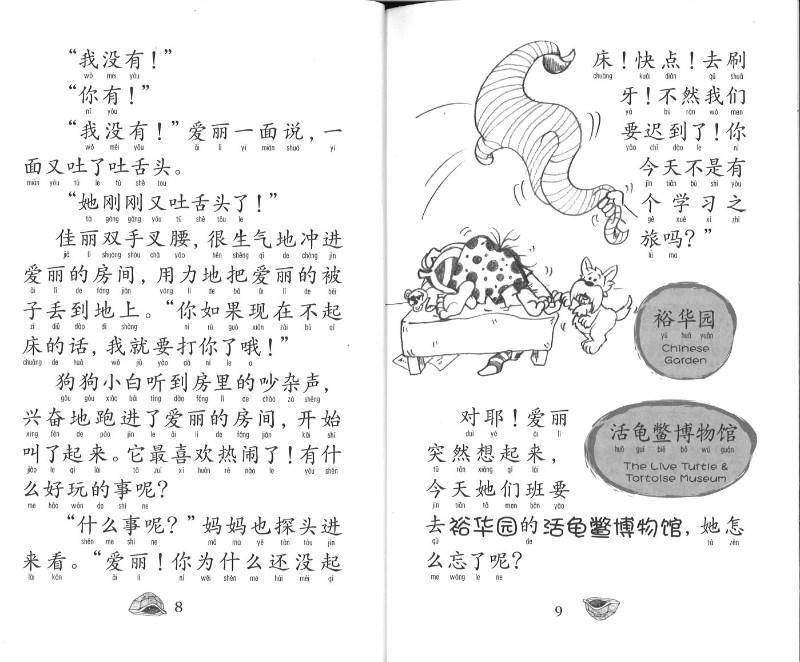 “我没有！”
wǒ méi yǒu
“你有！”
nǐ yǒu
“我没有！”爱丽一面说，一
wǒ méi yǒu ài lì yí miàn shuō yí
面又吐了吐舌头。
miàn yòu tǔ le tǔ shé tou
“她刚刚又吐舌头了！”
tā gāng gāng yòu tǔ shé tóu le
佳丽双手叉腰，很生气地冲进
jiā lì shuāng shǒu chā yāo hěn shēng qì de chōng jìn
爱丽的房间，用力地把爱丽的被
ài lì de fáng jiān yòng lì de bǎ ài lì de bèi
子丢到地上。“你如果现在不起
zi diū dào dì shàng nǐ rú guǒ xiàn zài bù qǐ
床的话，我就要打你了哦！”
chuáng de huà wǒ jiù yào dǎ nǐ le o
狗狗小白听到房里的吵杂声，
gǒu gǒu xiǎo bái tīng dào fáng lǐ de chǎo zá shēng
兴奋地跑进了爱丽的房间，开始
xīng fèn de pǎo jìn le ài lì de fáng jiān kāi shǐ
叫了起来。它最喜欢热闹了！有什
jiào le qǐ lái tā zuì xǐ huān rè nào le yǒu shén
么好玩的事呢？
me hǎo wán de shì ne
“什么事呢？”妈妈也探头进
shén me shì ne mā ma yě tàn tóu jìn
来看。“爱丽！你为什么还没起
lái kàn ài lì nǐ wèi shén me hái méi qǐ
8
床！快点！去刷
chuáng kuài diǎn qù shuā
牙！不然我们
yá bù rán wǒ men
要迟到了！你
yào chí dào le nǐ
今天不是有
jīn tiān bú shì yǒu
个学习之
gè xué xí zhī
旅吗？”
lǚ ma
裕华园
yù huá yuán
Chinese
Garden
活龟鳖博物馆
huó guī biē bó wù guǎn
The Live Turtle &
Tortoise Museum
对耶！爱丽
duì yē ài lì
突然想起来，
tū rán xiǎng qǐ lái
今天她们班要
jīn tiān tā men bān yào
去裕华园的活龟鳖博物馆，她怎
qù de tā zěn
么忘了呢？
me wàng le ne
9